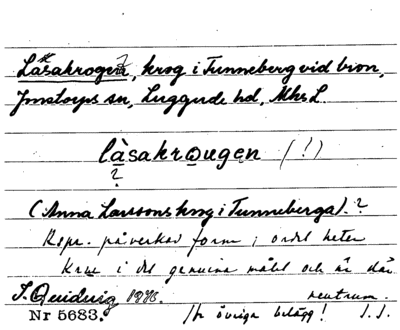 Låsakrogen, krog i Tunneberg vid bron,
Jonstorps sn, Luggude hd, Mhs L.
làsakrǫugen (!)
?
(Anna Larssons krog i Tunneberga). ?
Rspr. påverkad form; ordet heter
i det genuina målet och är där
neutrum.
I. Quidwig 1876.
Nr 5683. övriga belägg! I.I.